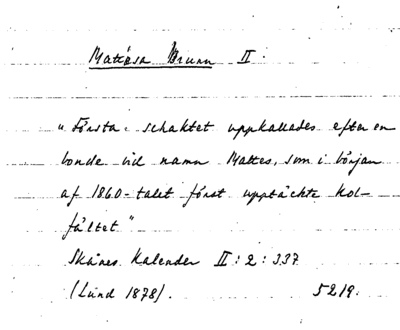 Mattesa Brunn II.
"Första schaktet uppkallades efter en
bonde vid namn Mattes, som i början
af 1860-talet först upptäckte kol-
fältet"
Skånes Kalender II:2:337
(Lund 1878). 5219.